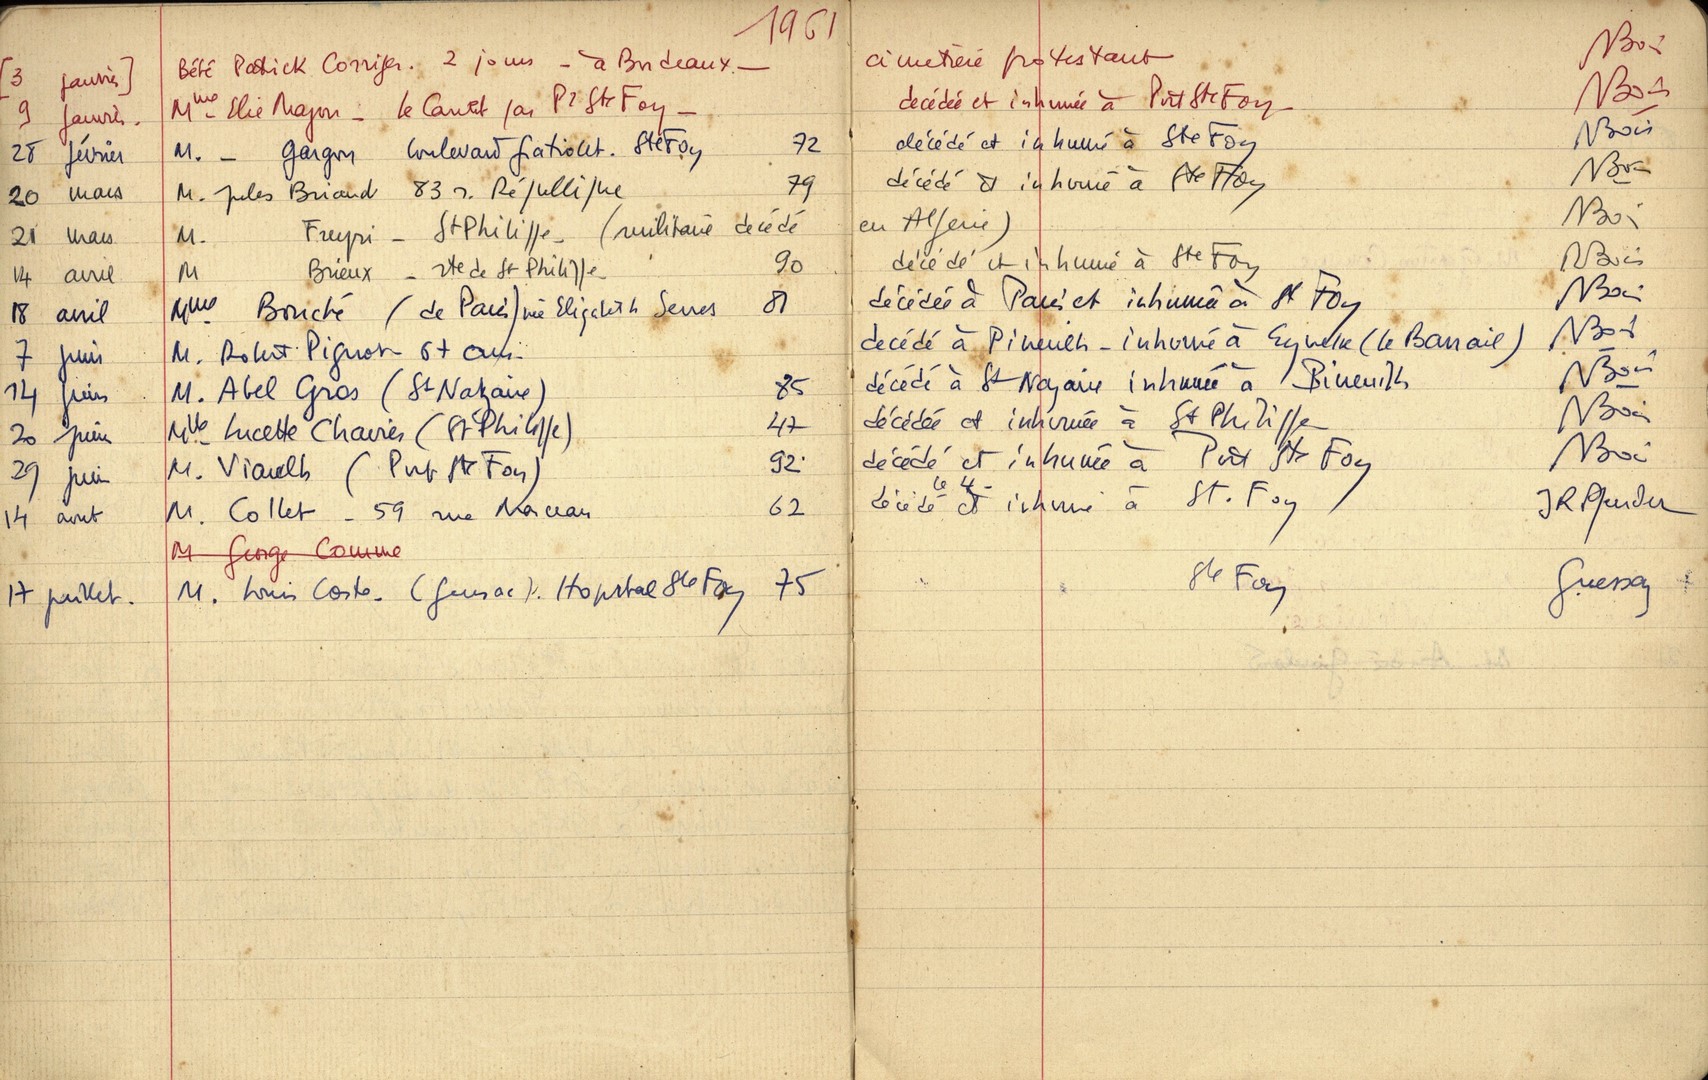 1961
[3 janvier] Bébé Patrick Corriger. 2 jours - à Bordeaux. — cimetière protestant NBois
9 janvier. Mme Elie Majou - le Canet par Pt Ste Foy - décédée et inhumée à Port Ste Foy - NBois
28 février M. - Gargou boulevard Gratiolet. Ste Foy 72 décédé et inhumé à Ste Foy NBois
20 mars M. Jules Briand 83 r. République 79 décédé et inhumé à Ste Foy NBois
21 mars M. - St Philippe - (militaire décédé en Algérie) NBois
14 avril M Brieux - rte de St Philippe - 90 décédé et inhumé à Ste Foy NBois
18 avril Mme Bouché (de Paris) née Elizabeth Serres 81 décédée à Paris et inhumée à St Foy NBois
7 juin M. Robert Pignon 67 ans - décédé à Pineuilh - inhumé à Eynesse (le Barrail) NBois
14 juin M. Abel Gros (St Nazaire) 85 décédé à St Nazaire inhumé à Pineuilh NBois
20 juin Mlle Lucette Chavier (St Philippe) 47 décédée et inhumée à St Philippe NBois
29 juin M. Viaulh (Port Ste Foy) 92 décédé et inhumé à Port Ste Foy NBois
14 aout M. Collet - 59 rue Marceau 62 décédé et inhumé à St. Foy JR Pfender
M George Comme
17 juillet. M. Louis Coste. (Gensac). Hopital Ste Foy 75 Ste Foy